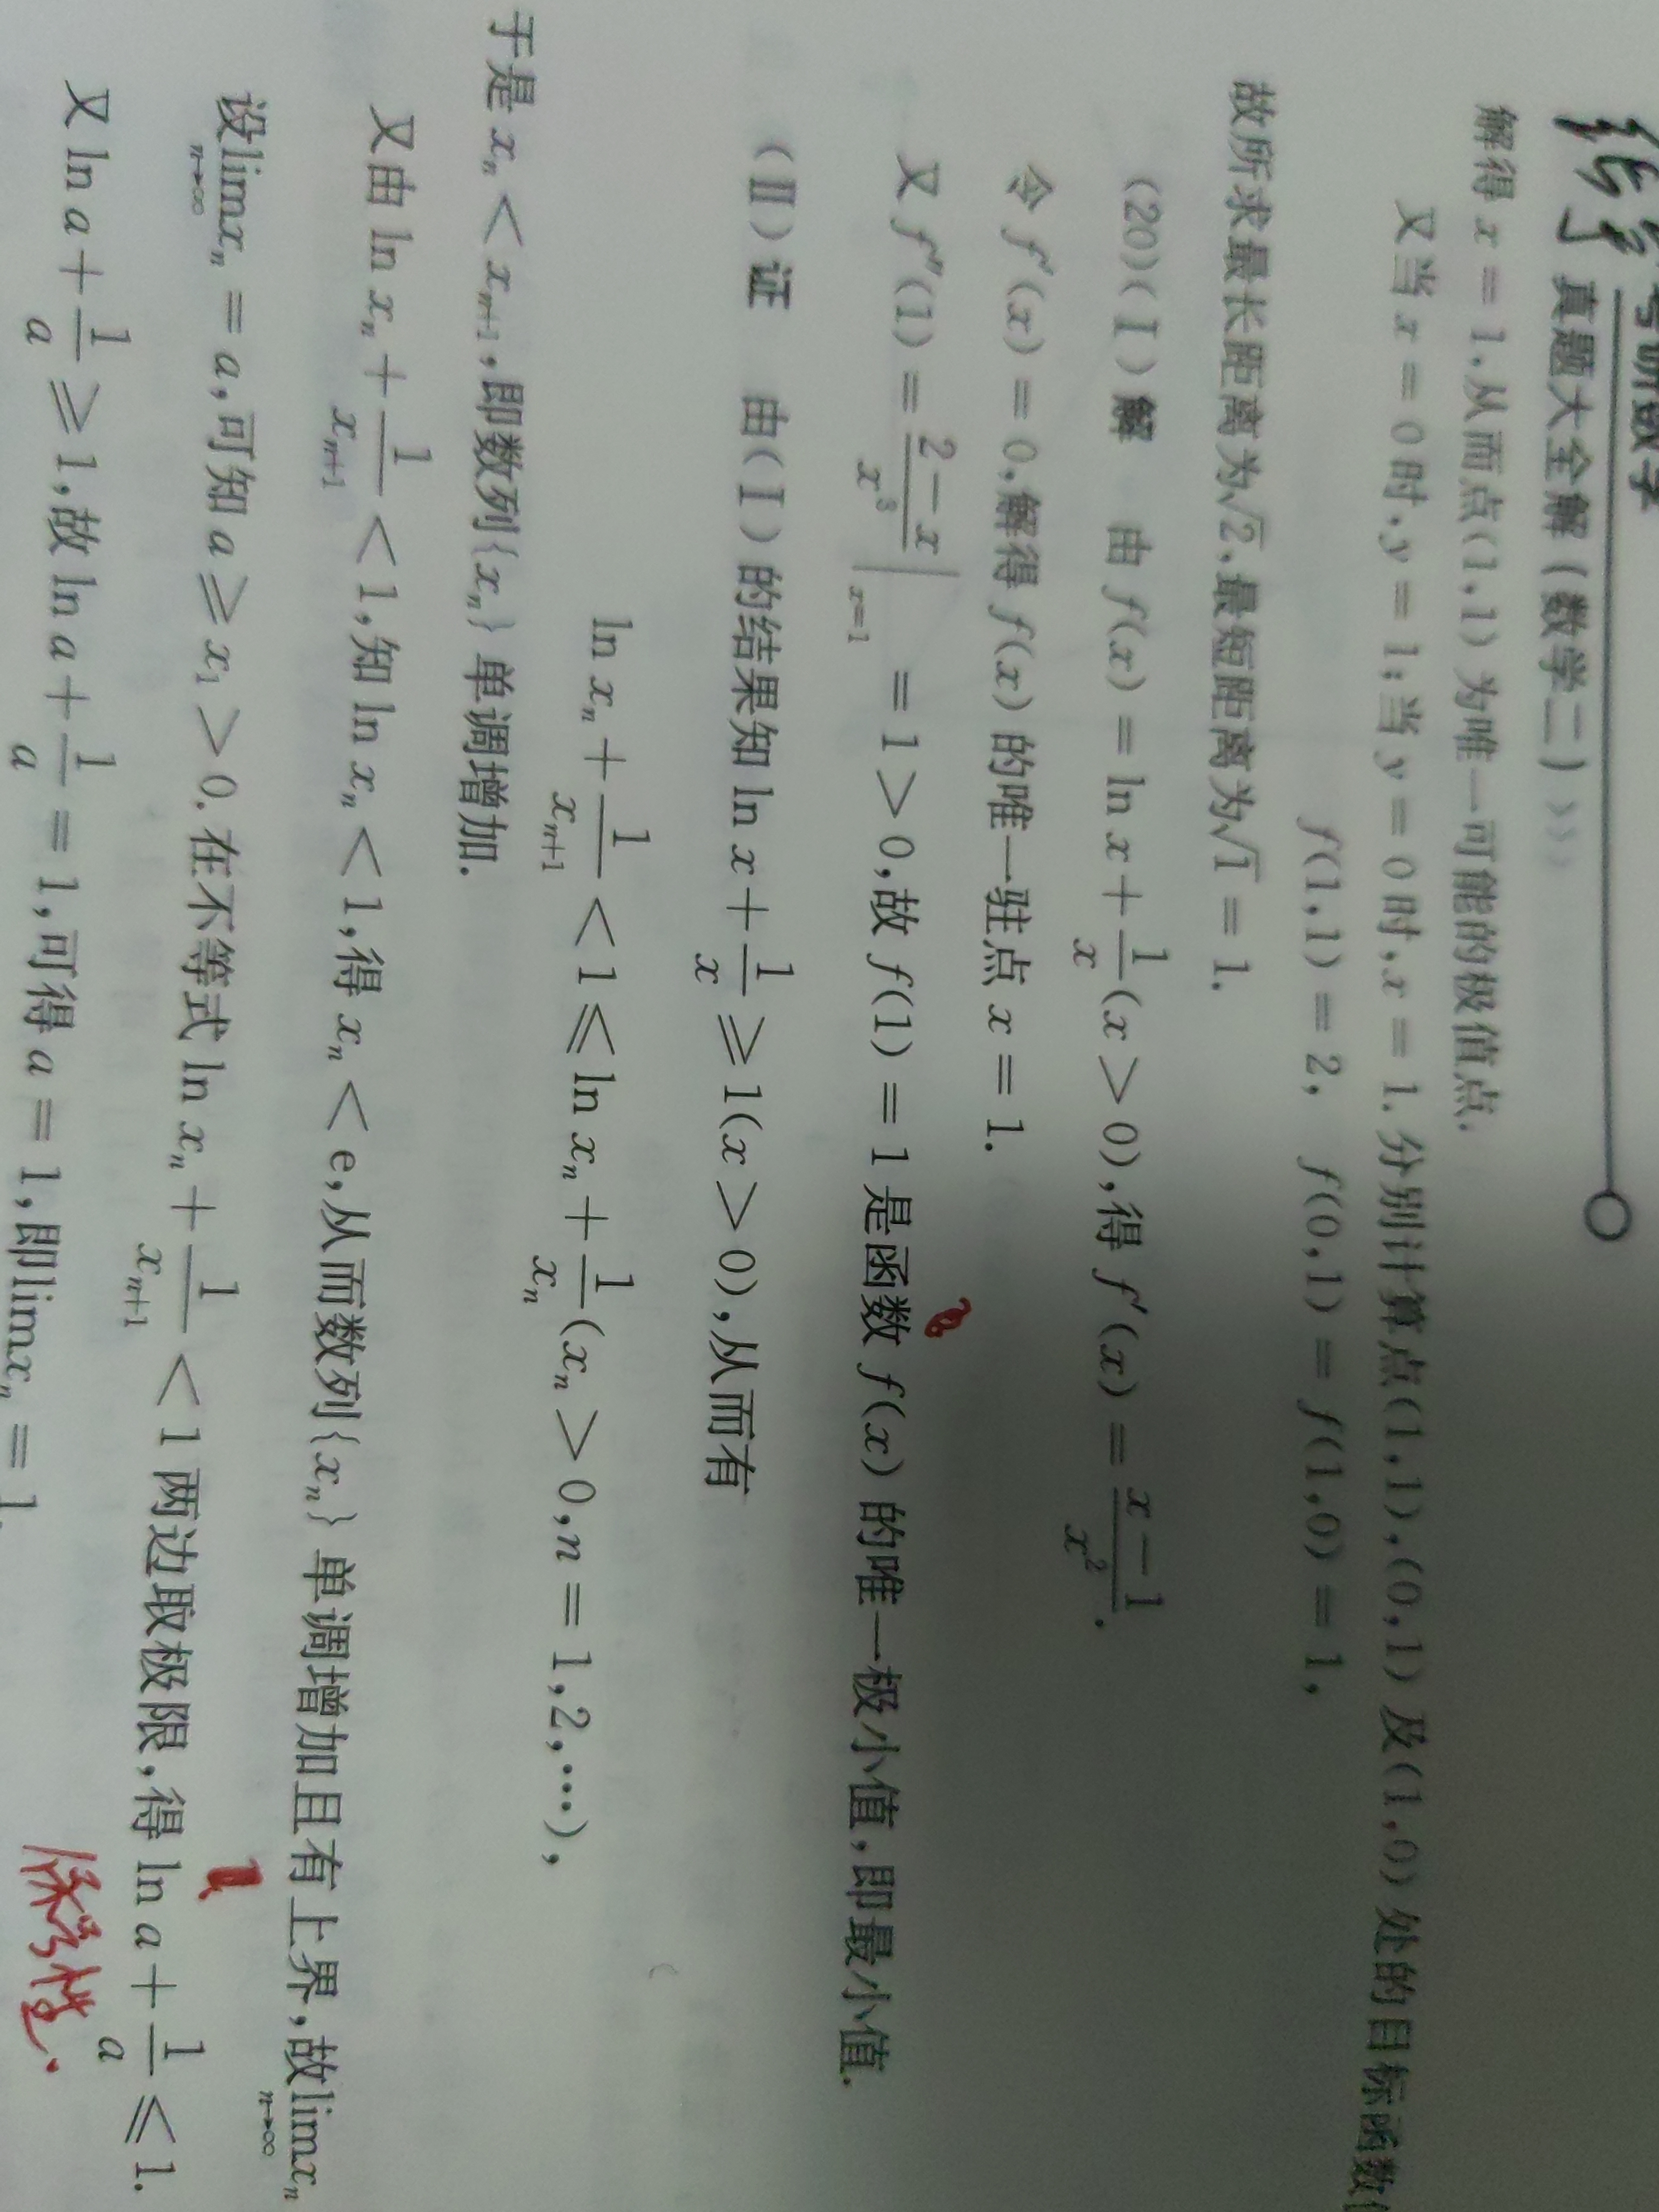 考研数学
真题大全解（数学二）》》》
解得 x = 1,从而点(1,1) 为唯一可能的极值点.
又当 x = 0 时,y = 1;当 y = 0 时,x = 1. 分别计算点(1,1),(0,1) 及(1,0) 处的目标函数
f(1,1) = 2, f(0,1) = f(1,0) = 1,
故所求最长距离为√2,最短距离为√1 = 1.
(20)(Ⅰ)解 由 f(x) = ln x + 1/x (x > 0),得 f′(x) = (x − 1)/x².
令 f′(x) = 0,解得 f(x) 的唯一驻点 x = 1.
又 f″(1) = (2 − x)/x³ |ₓ₌₁ = 1 > 0,故 f(1) = 1 是函数 f(x) 的唯一极小值,即最小值.
(Ⅱ)证 由(Ⅰ)的结果知 ln x + 1/x ⩾ 1(x > 0),从而有
ln xₙ + 1/xₙ₊₁ < 1 ⩽ ln xₙ + 1/xₙ (xₙ > 0,n = 1,2,⋯),
于是 xₙ < xₙ₊₁,即数列{xₙ} 单调增加.
又由 ln xₙ + 1/xₙ₊₁ < 1,知 ln xₙ < 1,得 xₙ < e,从而数列{xₙ} 单调增加且有上界,故 lim n→∞ xₙ
设 lim n→∞ xₙ = a,可知 a ⩾ x₁ > 0. 在不等式 ln xₙ + 1/xₙ₊₁ < 1 两边取极限,得 ln a + 1/a ⩽ 1.
又 ln a + 1/a ⩾ 1,故 ln a + 1/a = 1,可得 a = 1,即 lim xₙ = 1.
保号性.